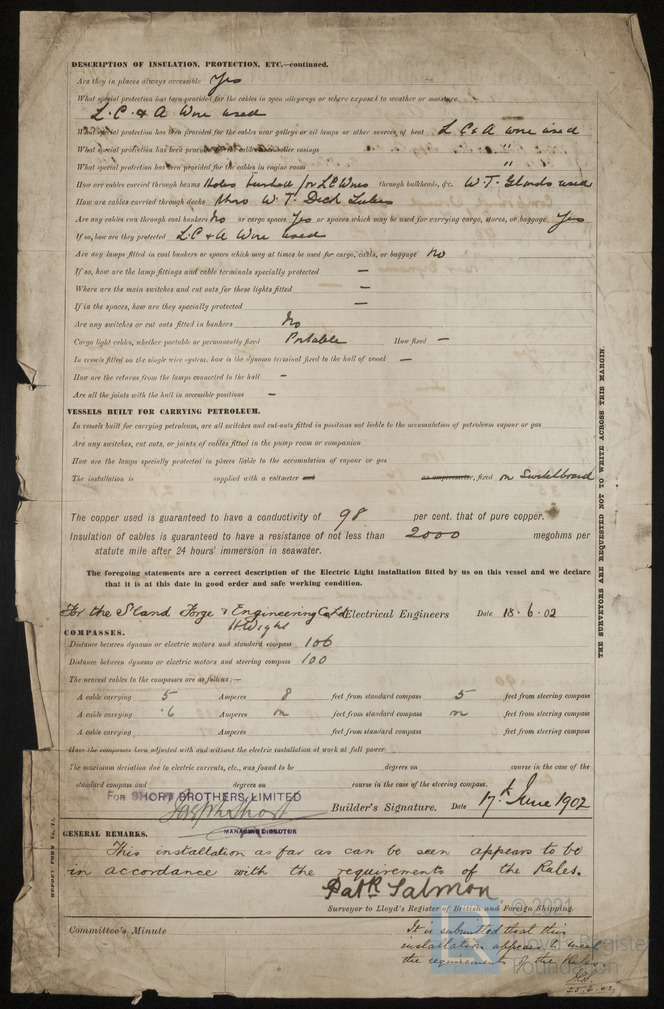 DESCRIPTION OF INSULATION, PROTECTION, ETC.—continued.
Are they in places always accessible Yes
What special protection has been provided for the cables in open alleyways or where exposed to weather or moisture
L.C. & A Wire used
What special protection has been provided for the cables near galleys or oil lamps or other sources of heat L C & A wire used
What special protection has been provided for the cables near boiler casings "
What special protection has been provided for the cables in engine room "
How are cables carried through beams Holes for L C Wires through bulkheads, &c. W.T. Glands used
How are cables carried through decks Thro W.T. Deck Tubes
Are any cables run through coal bunkers No or cargo spaces Yes or spaces which may be used for carrying cargo, stores, or baggage Yes
If so, how are they protected L.C & A Wire used
Are any lamps fitted in coal bunkers or spaces which may at times be used for cargo, coals, or baggage No
If so, how are the lamp fittings and cable terminals specially protected —
Where are the main switches and cut outs for these lights fitted —
If in the spaces, how are they specially protected —
Are any switches or cut outs fitted in bunkers No
Cargo light cables, whether portable or permanently fixed Portable How fixed —
In vessels fitted on the single wire system, how is the dynamo terminal fixed to the hull of vessel —
How are the returns from the lamps connected to the hull —
Are all the joints with the hull in accessible positions —
VESSELS BUILT FOR CARRYING PETROLEUM.
In vessels built for carrying petroleum, are all switches and cut-outs fitted in positions not liable to the accumulation of petroleum vapour or gas
Are any switches, cut outs, or joints of cables fitted in the pump room or companion
How are the lamps specially protected in places liable to the accumulation of vapour or gas
The installation is supplied with a voltmeter and an amperemeter, fixed on Switchboard
The copper used is guaranteed to have a conductivity of 98 per cent. that of pure copper.
Insulation of cables is guaranteed to have a resistance of not less than 2000 megohms per
statute mile after 24 hours' immersion in seawater.
The foregoing statements are a correct description of the Electric Light installation fitted by us on this vessel and we declare
that it is at this date in good order and safe working condition.
For the Sland Forge & Engineering Co Ltd Electrical Engineers Date 18.6.02
H Wight
COMPASSES.
Distance between dynamo or electric motors and standard compass 106
Distance between dynamo or electric motors and steering compass 100
The nearest cables to the compasses are as follows:—
A cable carrying 5 Amperes 8 feet from standard compass 5 feet from steering compass
A cable carrying .6 Amperes on feet from standard compass on feet from steering compass
A cable carrying Amperes feet from standard compass feet from steering compass
Have the compasses been adjusted with and without the electric installation at work at full power
The maximum deviation due to electric currents, etc., was found to be degrees on course in the case of the
standard compass and degrees on course in the case of the steering compass.
FOR SHORT BROTHERS, LIMITED
Joseph Short Builder's Signature. Date 17th June 1902
MANAGING DIRECTOR
GENERAL REMARKS.
This installation as far as can be seen appears to be
in accordance with the requirements of the Rules.
Patk Salmon
Surveyor to Lloyd's Register of British and Foreign Shipping.
Committee's Minute
It is submitted that this
installation appears to meet
the requirements of the Rules
25.6.02
THE SURVEYORS ARE REQUESTED NOT TO WRITE ACROSS THIS MARGIN.
© 2021
Lloyd's Register
Foundation